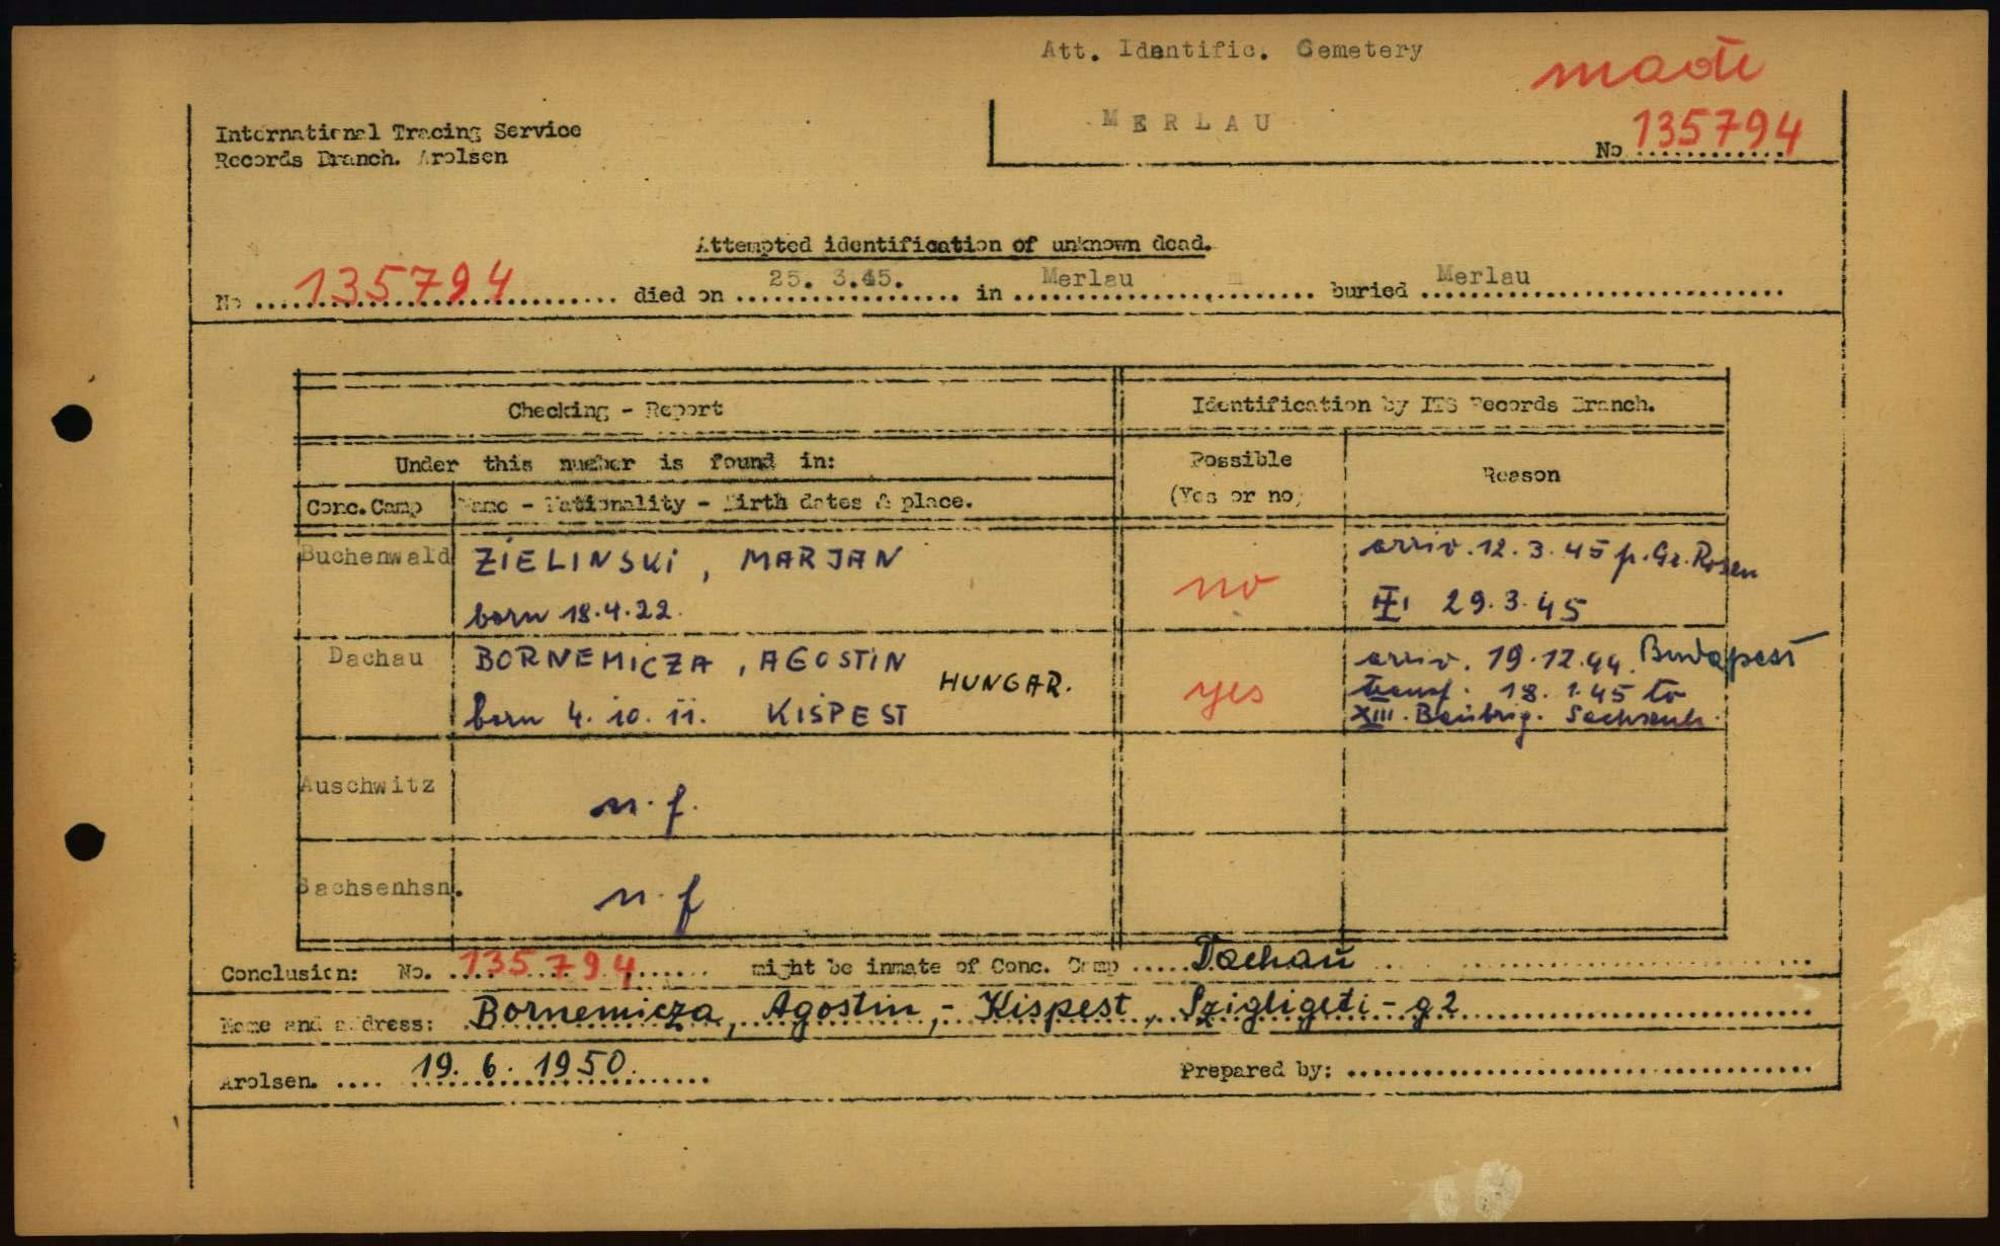 Att. Identific. Cemetery
International Tracing Service
Records Branch. Arolsen
MERLAU
No 135794
Attempted identification of unknown dead.
No 135794 died on 25. 3.45. in Merlau buried Merlau
Checking - Report
Identification by ITS Records Branch.
Under this number is found in:
Possible
(Yes or no)
Reason
Conc.Camp
Name - Nationality - Birth dates & place.
Buchenwald
ZIELINSKI, MARJAN
born 18.4.22.
no
arriv. 12.3.45 p. Gr. Rosen
29.3.45
Dachau
BORNEMICZA, AGOSTIN
HUNGAR.
born 4. 10. 11. KISPEST
yes
arriv. 19.12.44. Budapest
transf. 18.1.45 to
XIII. Baubrig. Sachsenh.
Auschwitz
n.f.
Sachsenhsn.
n.f
Conclusion: No. 135794 might be inmate of Conc. Camp Dachau
Name and address: Bornemicza, Agostin, - Kispest, Szigligeti - g2
Arolsen. 19. 6. 1950.
Prepared by: